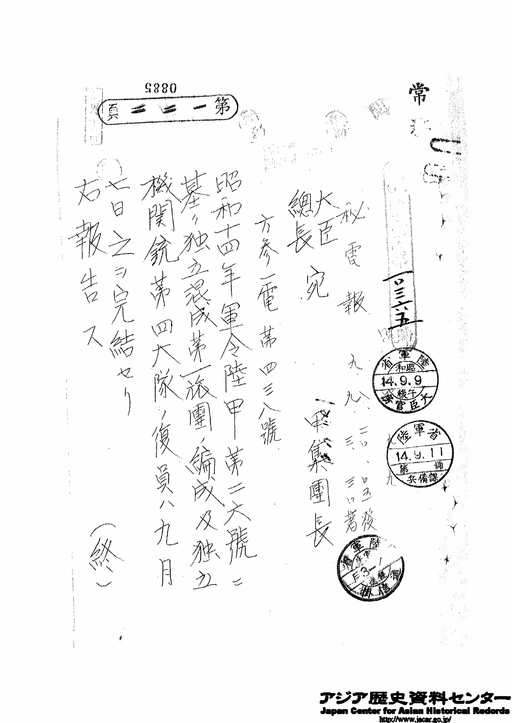 0885
第一二二頁
常
秘電報
一〇三六五
九、九、
大臣
總長 宛
甲集團長
方参一電第四三八號
昭和十四年軍令陸甲第二六號ニ
基ク独立混成第一旅團ノ編成及独立
機関銃第四大隊ノ復員ハ九月
七日之ヲ完結セリ
右報告ス
(終)
陸軍省
昭和
14.9.9
午後
大臣官房
陸軍省
14.9.11
兵備課
アジア歴史資料センター
Japan Center for Asian Historical Records
http://www.jacar.go.jp/